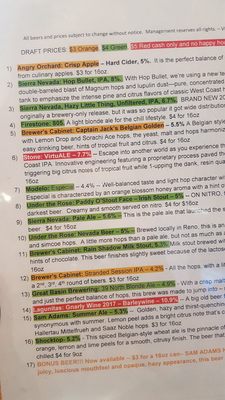 All beers and prices subject to change without notice. Management reserves all rights. –
DRAFT PRICES: $3 Orange, $4 Green, $5 Red cash only and no happy
1) Angry Orchard: Crisp Apple – Hard Cider, 5%. It is the perfect balance of
from culinary apples. $3 for 16oz
2) Sierra Nevada: Hop Bullet, IPA, 8%. With Hop Bullet, we're using a new
double-barreled blast of Magnum hops and lupulin dust—pure, concentrated
tank to emphasize the intense pine and citrus flavors of classic West Coast
3) Sierra Nevada: Hazy Little Thing, Unfiltered, IPA, 6.7%. BRAND NEW
originally a brewery-only release, but it was so popular it got wide distribution
4) Firestone: 805, A light blonde ale for the chill lifestyle. $4 for 16oz
5) Brewer's Cabinet: Captain Jack's Belgian Golden – 5.6% A Belgian style
with Lemon Drop and Sorachi Ace hops, the yeast, malt and hops harmonize
easy drinking beer, hints of tropical fruit and citrus. $4 for 16oz
6) Stone: VirtuALE – 7.7%. Escape into another world as you experience
Coast IPA. Innovative engineering featuring a proprietary process paved the
triggering big citrus notes of tropical fruit while 1-upping the dank, resin
16oz
7) Modelo: Especial – 4.4% – Well-balanced taste and light hop character with
Especial is characterized by an orange blossom honey aroma with a hint of
8) Under the Rose: Paddy O'Stout Face – Irish Stout – – ON NITRO.
darkest beer. Creamy and smooth served on nitro. $4 for $16oz
9) Sierra Nevada: Pale Ale – 5.6% – This is the pale ale that launched the
beer. $4 for 16oz
10) Under the Rose: Nevada Beer – 5% – Brewed locally in Reno, this is an
and simcoe hops. A little more hops than a pale ale, but not as much as
11) Brewer's Cabinet: Rain Shadow Milk Stout, 5.3% Milk stout brewed with
hints of chocolate. This beer finishes slightly sweet because of the lactose
16oz
12) Brewer's Cabinet: Stranded Session IPA – 4.2% - All the hops, with a
a 2nd, 3rd, 4th round of beers. $3 for 16oz.
13) Great Basin Brewering: Nevada Blonde Ale – 4.6% – With a crisp malt
and just the perfect balance of hops, this brew was made to jump into –
14) Lagunitas: Gnarly Wine 2017 – Barleywine – 10.9% – A big old beer
15) Sam Adams: Summer Ale – 5.3% – Golden, hazy and thirst-quenching
synonymous with summer. Lemon peel adds a bright citrus note that's
Hallertau Mittelfrueh and Saaz Noble hops. $3 for 16oz.
16) Shocktop- 5.3% - This spiced Belgian-style wheat ale is the pinnacle of
orange, lemon and lime peels for a smooth, citrusy finish. The beer that
chilled $4 for 9oz
17) BONUS BEER!!! Now available – $3 for a 16oz can– SAM ADAMS
juicy, luscious mouthfeel and opaque, hazy appearance, this beer